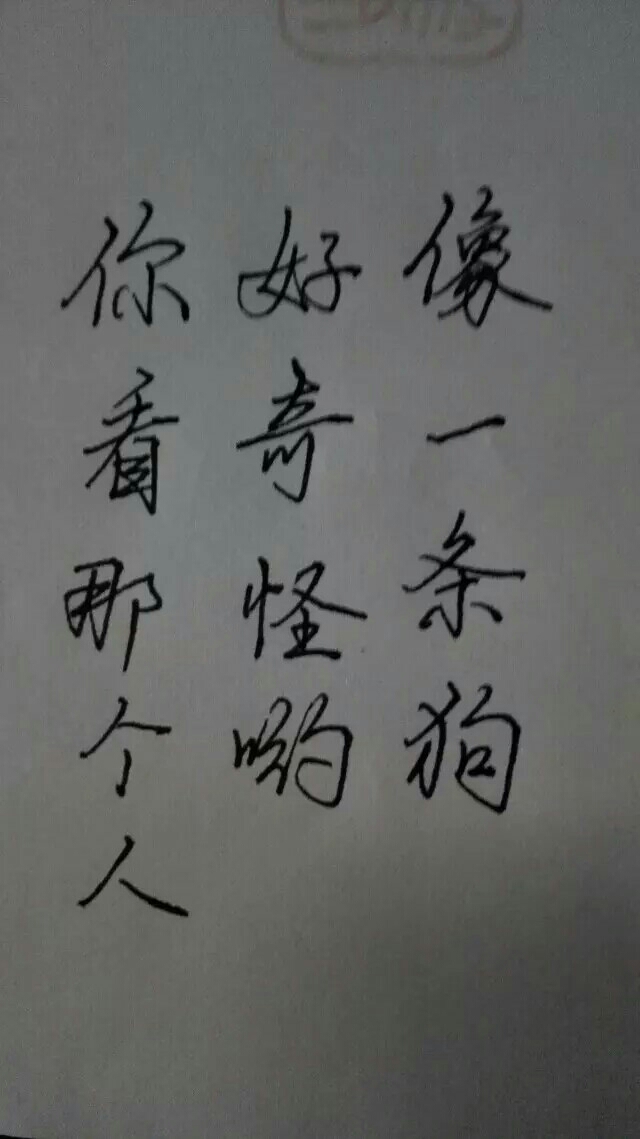 你看那个人
好奇怪哟
像一条狗